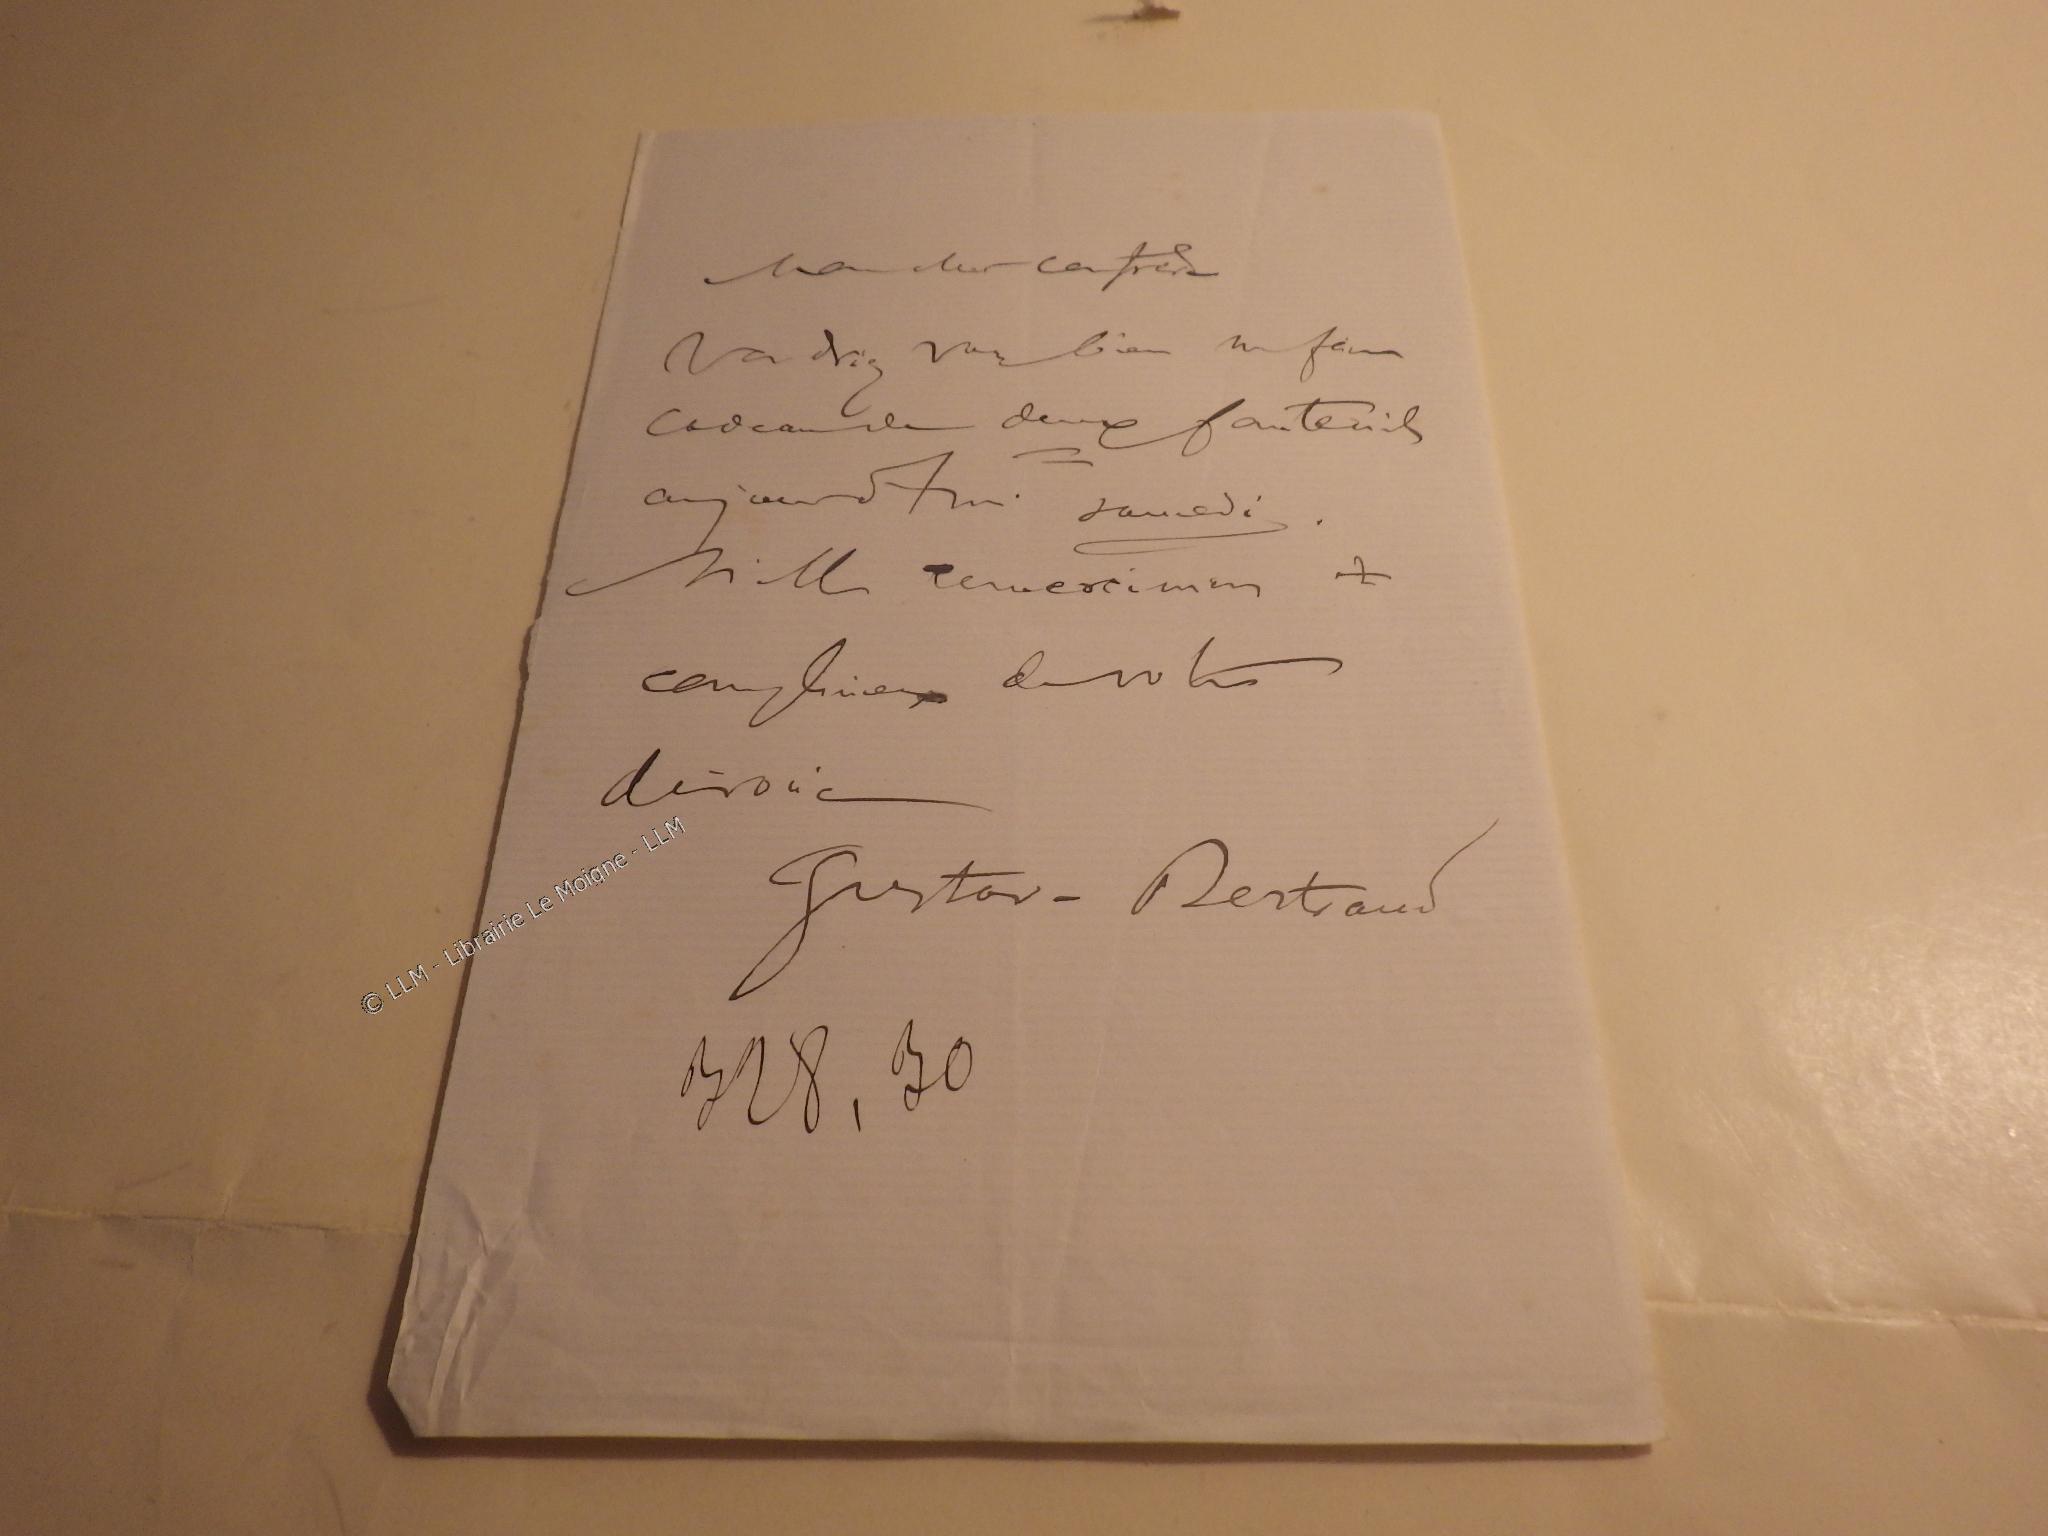 Mon cher confrère
Voudriez vous bien me faire
cadeau de deux fauteuils
aujourd'hui samedi.
Mille remerciemens et
complimens de votre
dévoué
Gustave Bertrand
328,30
© LLM - Librairie Le Moigne - LLM